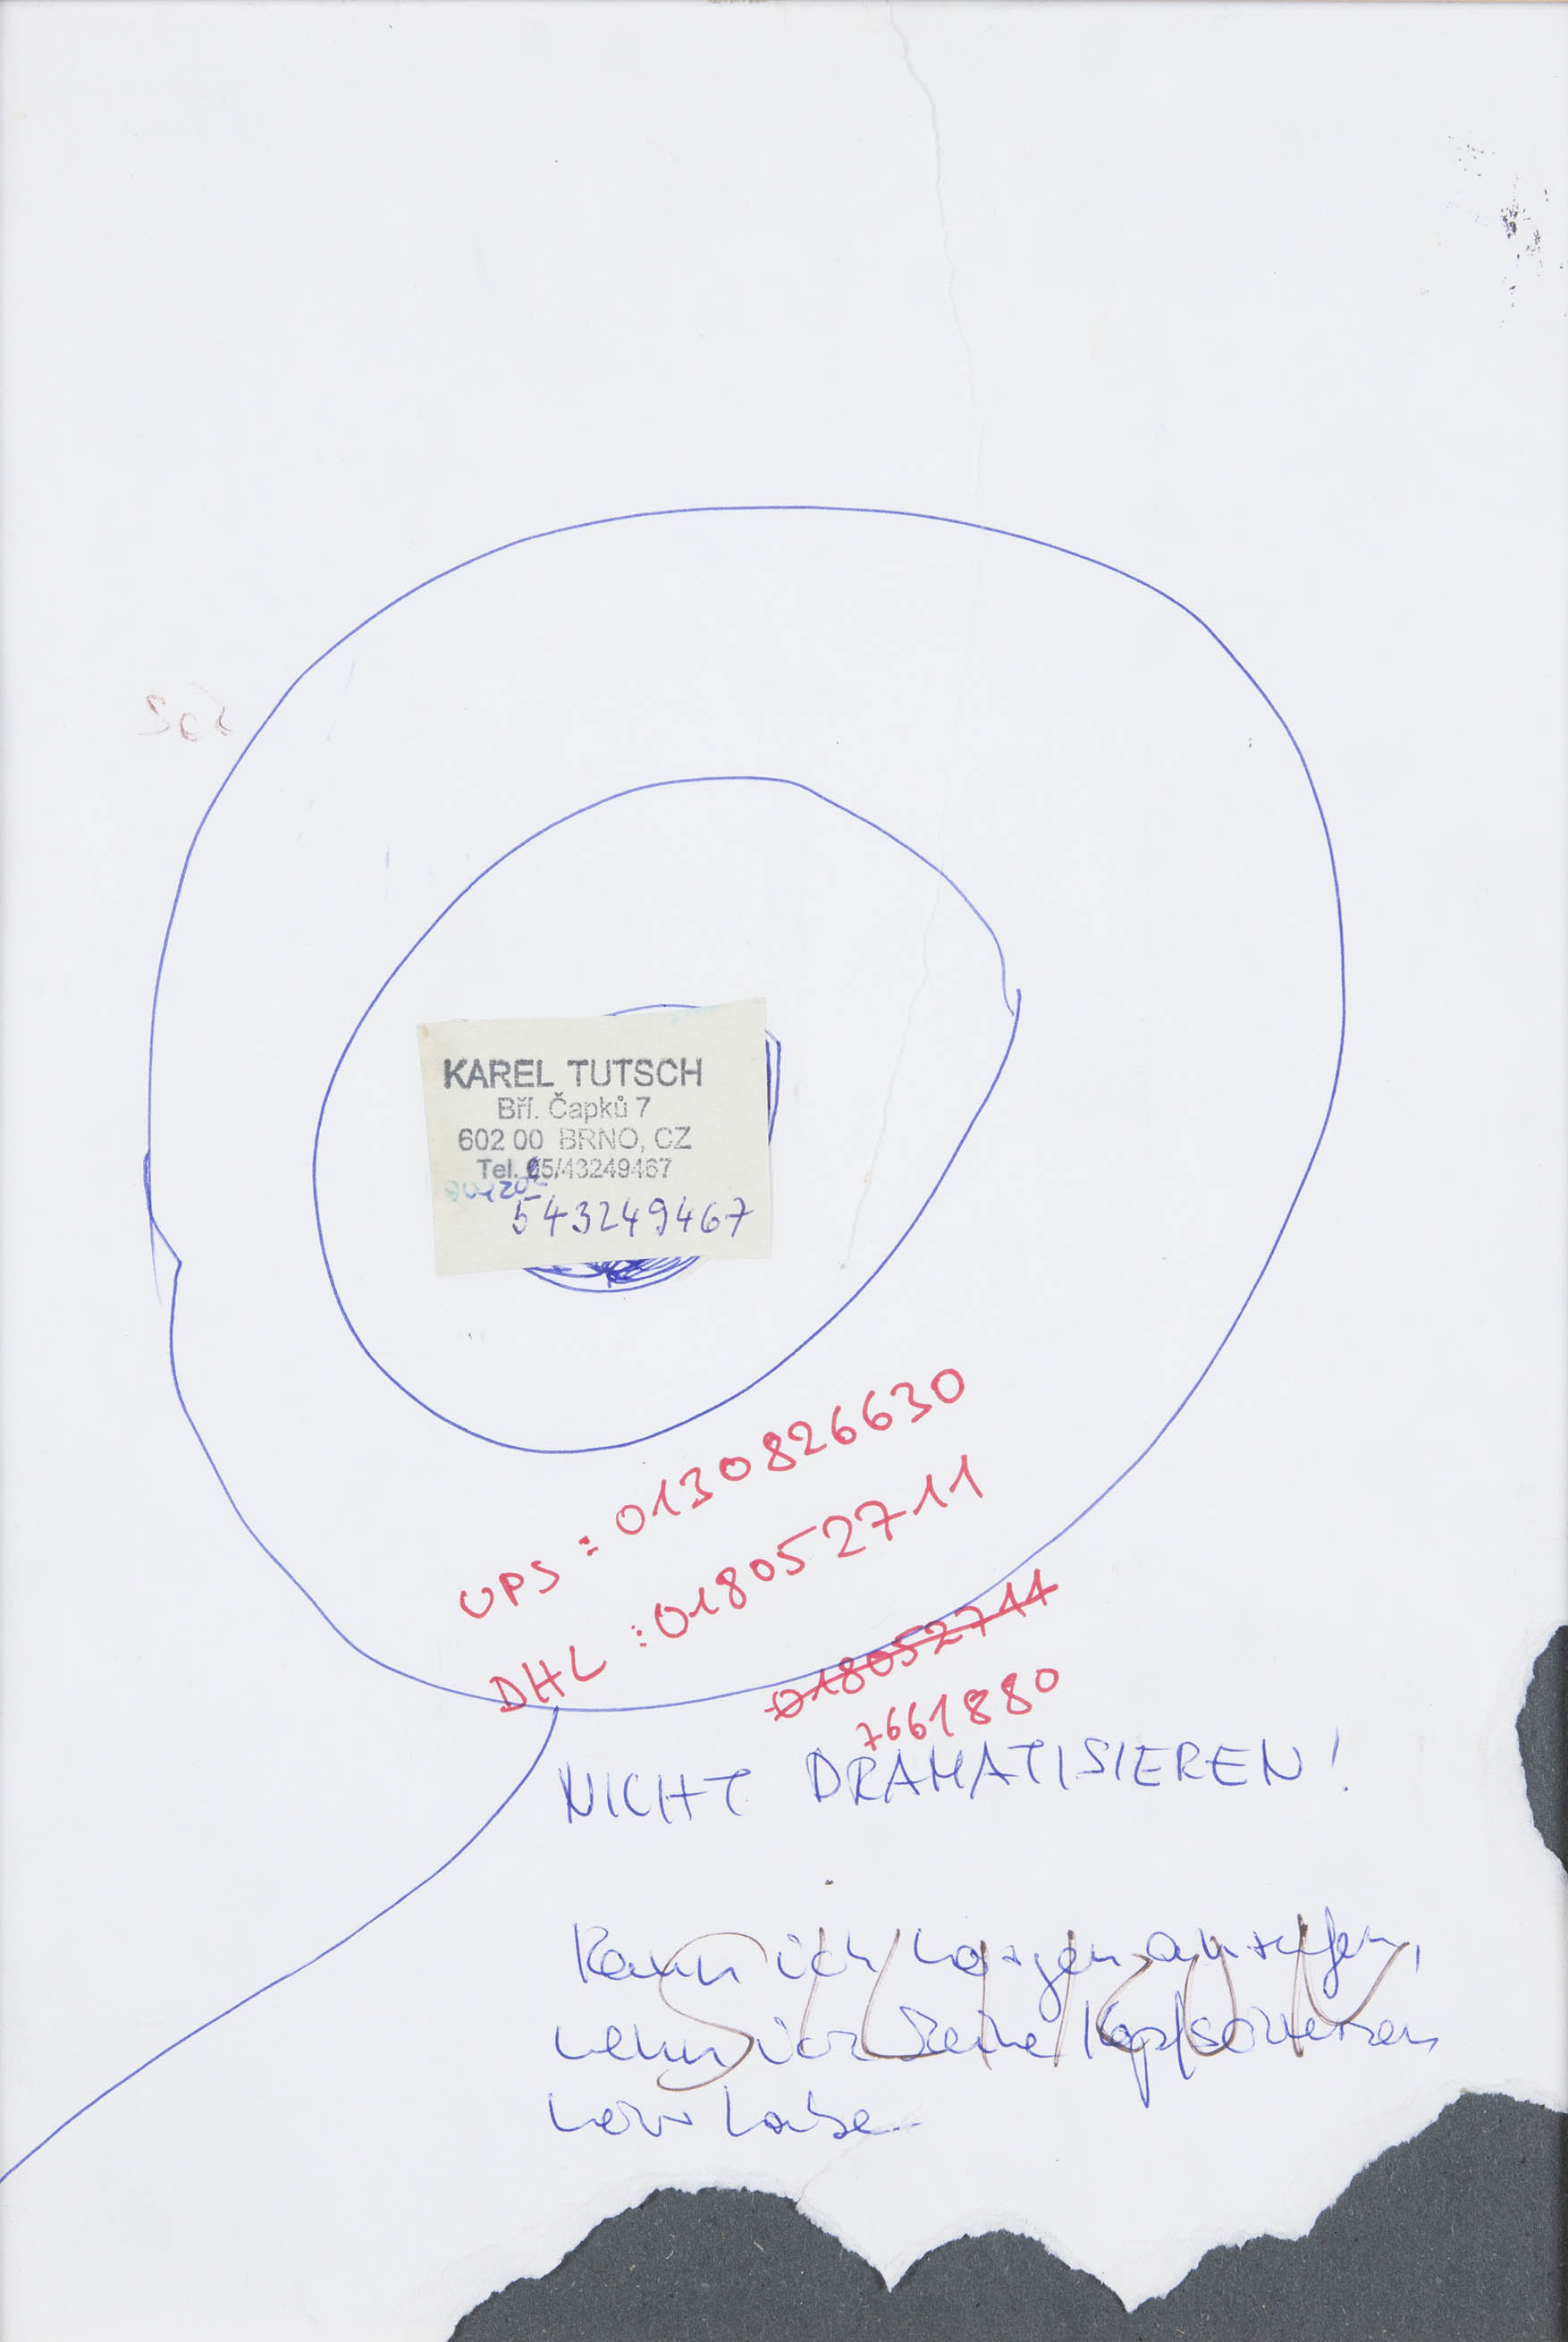 KAREL TUTSCH
Bří. Čapků 7
602 00 BRNO, CZ
Tel. 05/43249467
543249467
UPS : 0130826630
DHL : 0180527 11
018052711
7661880
NICHT DRAMATISIEREN!
Kann ich morgen anrufen,
wenn ich keine Kopfschmerzen
mehr habe